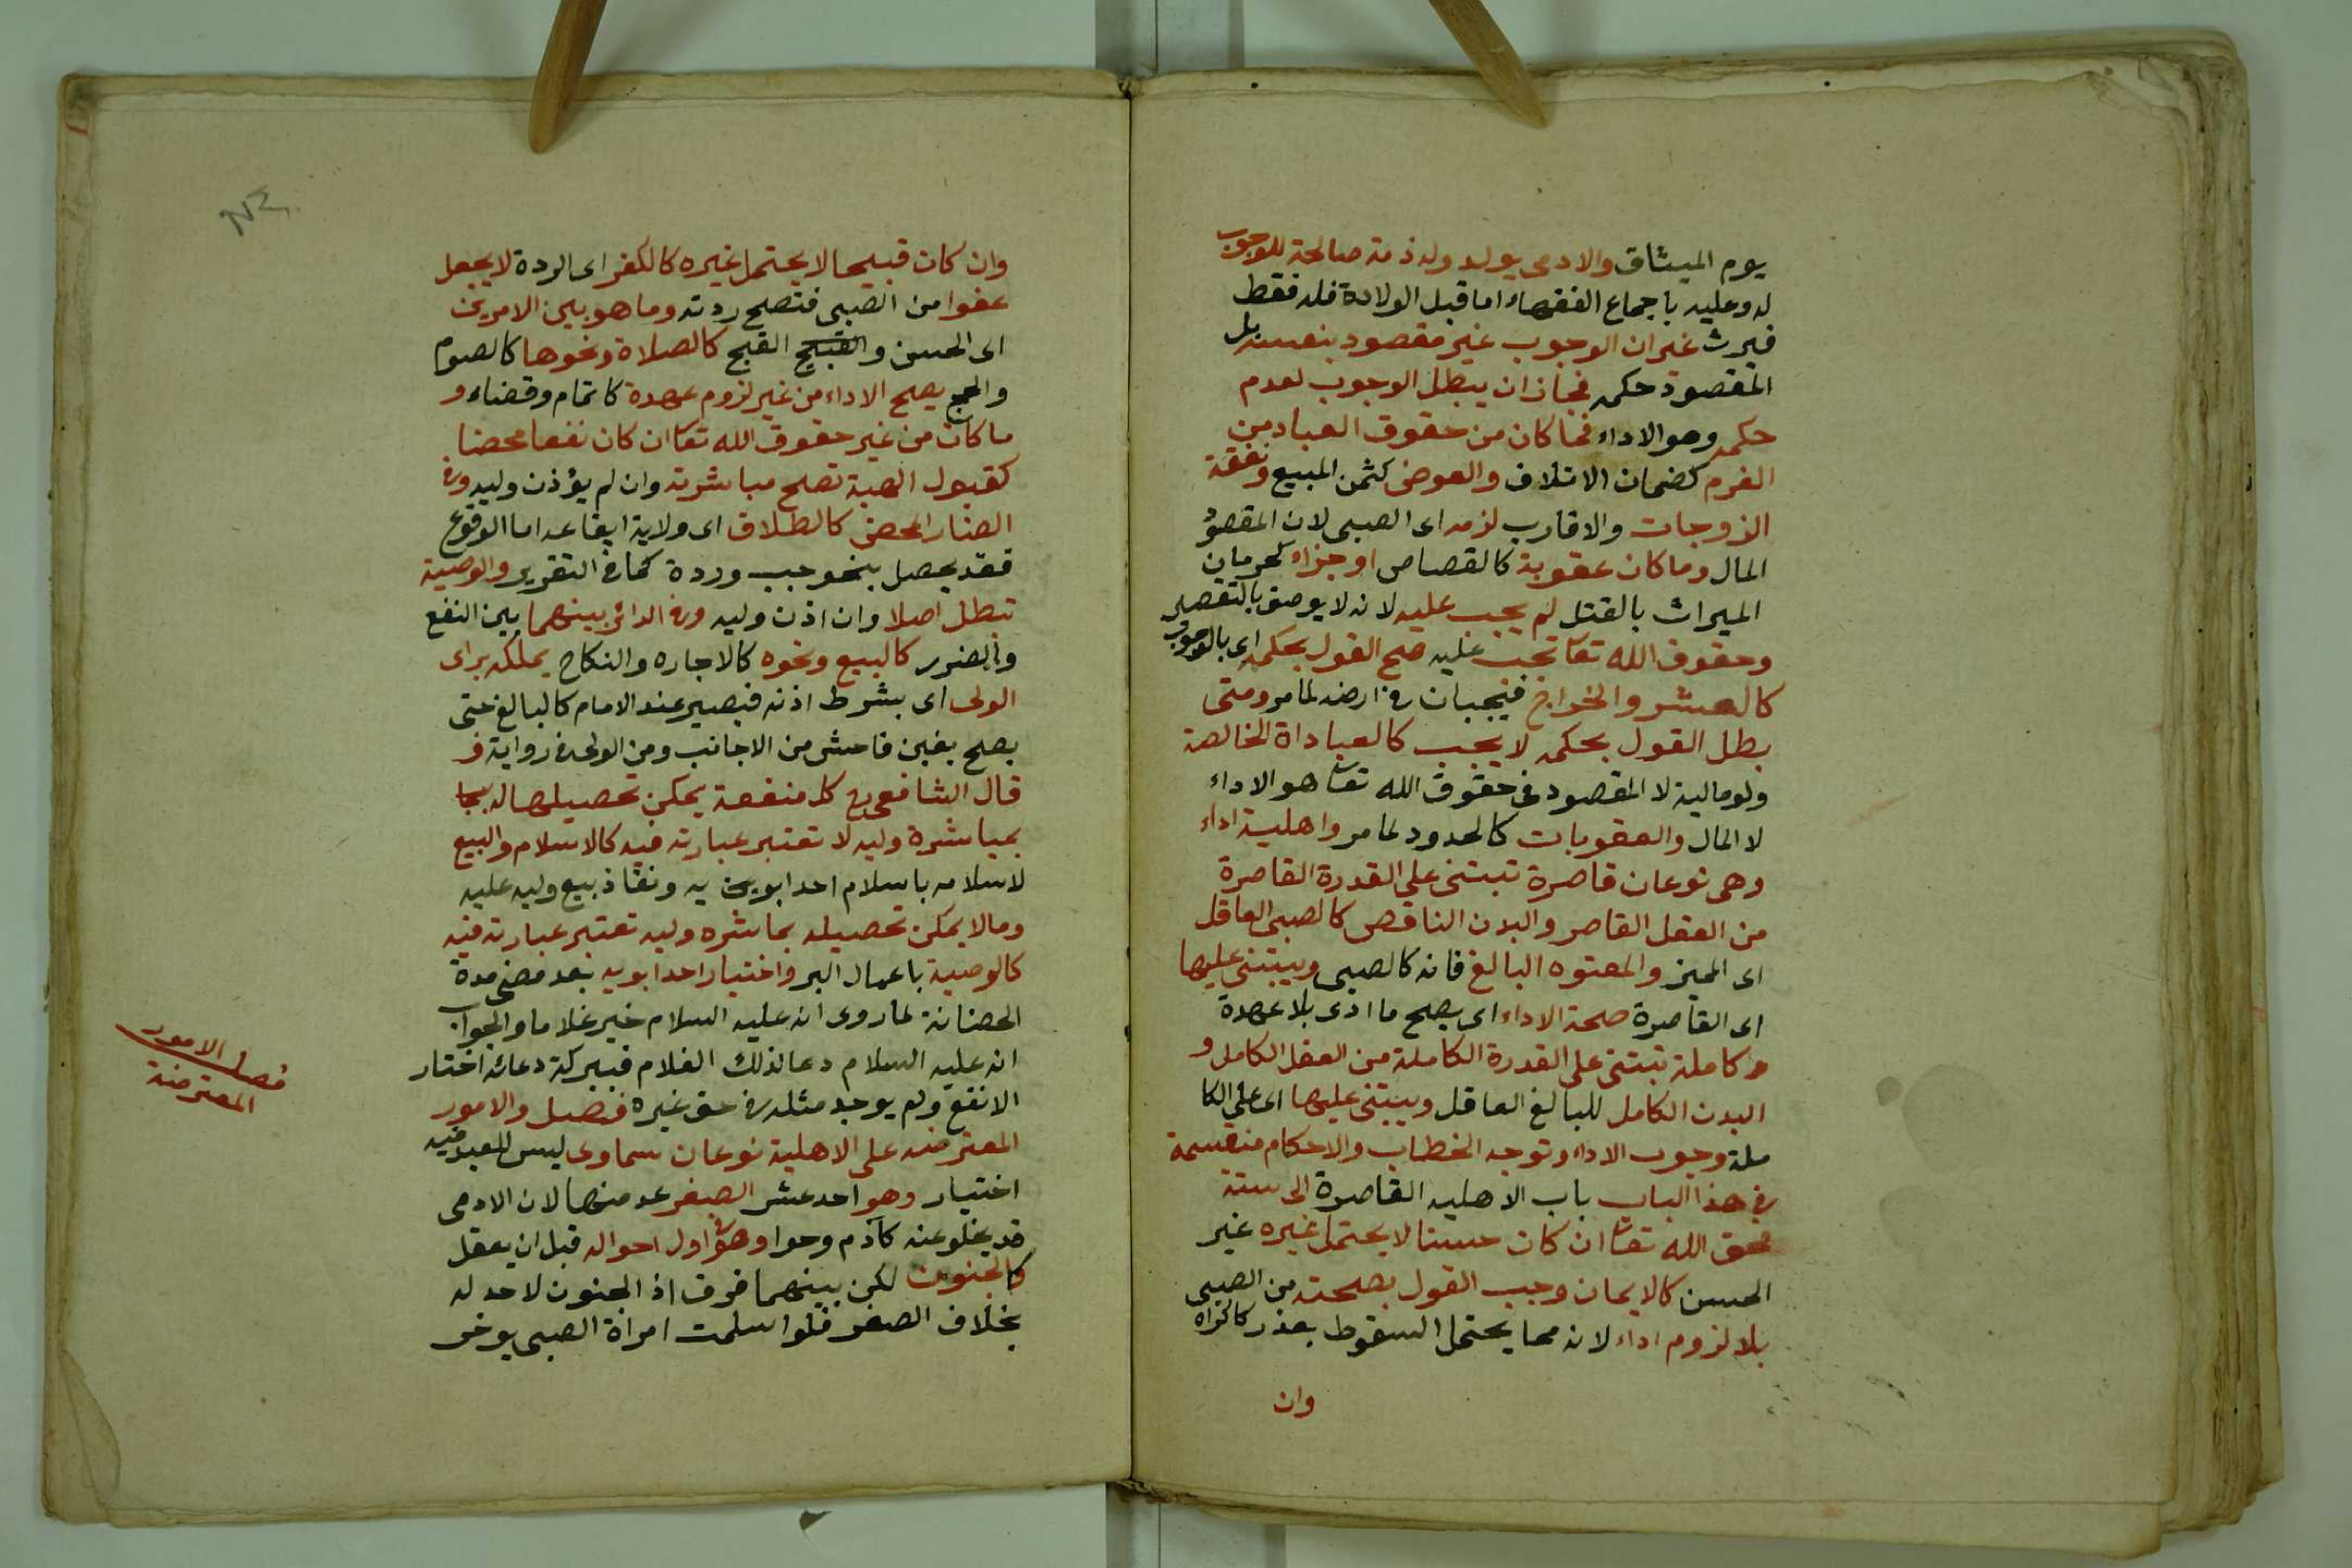 يوم الميثاق والادمى يولد وله ذمة صالحة للوجوب
له وعليه باجماع الفقهاء اما قبل الولادة فله فقط
فيرث غير ان الوجوب غير مقصود بنفسه بل
المقصود حكمه فجاز ان يبطل الوجوب لعدم
حكمه وهو الاداء فما كان من حقوق العباد من
الغرم كضمان الاتلاف والعوض كثمن المبيع ونفقة
الزوجات والاقارب لزمه اى الصبى لان المقصود
المال وما كان عقوبة كالقصاص او جزاء كحرمان
الميراث بالقتل لم يجب عليه لانه لا يوصف بالتقصير
وحقوق الله تعا تجب عليه صح القول بحكمه اى بالوجوب
كالعشر والخراج فيجبان فى ارضه لما مر ومتى
بطل القول بحكمه لا يجب كالعباداة الخالصة
ولو مالية لا المقصود فى حقوق الله تعا هو الاداء
لا المال والعقوبات كالحدود لما مر واهلية اداء
وهى نوعان قاصرة تبتنى على القدرة القاصرة
من العقل القاصر والبدن الناقص كالصبى العاقل
اى المميز والمعتوه البالغ فانه كالصبى ويبتنى عليها
اى القاصرة صحة الاداء اى يصح ما ادى بلا عهدة
وكاملة تبتنى على القدرة الكاملة من العقل الكامل و
البدن الكامل للبالغ العاقل ويبتنى عليها اى على الكا
ملة وجوب الاداء وتوجه الخطاب والاحكام منقسمة
فى هذا الباب باب الاهليه القاصرة الى ستة
فحق الله تعا ان كان حسنا لا يحتمل غيره غير
الحسن كالايمان وجب القول بصحته من الصبى
بلا لزوم اداء لانه مما يحتمل السقوط بعذر كاكراه
وان
وان كان قبيحا لا يحتمل غيره كالكفر اى الردة لا يجعل
عفوا من الصبى فتصح ردته وما هو بين الامرين
اى الحسن والقبيح القبح كالصلاة ونحوها كالصوم
والحج يصح الاداء من غير لزوم عهدة كاتمام وقضاء و
ما كان من غير حقوق الله تعا ان كان نفعا محضا
كقبول الهبة تصح مباشرته وان لم يؤذن وليه وفى
الضار المحض كالطلاق اى ولاية ايقاعه اما الوقوع
فقد يحصل بنحو جب وردة كما فى التقرير والوصية
تبطل اصلا وان اذن وليه وفى الدائر بينهما بين النفع
والضرر كالبيع ونحوه كالاجاره والنكاح يملكه براى
الولى اى بشرط اذنه فيصير عند الامام كالبالغ حتى
يصح بغبن فاحش من الاجانب ومن الولى فى رواية و
قال الشافعى رح كل منفعة يمكن تحصيلها له بجا
بمباشرة وليه لا تعتبر عبارته فيه كالاسلام والبيع
لاسلامه باسلام احد ابوين يه ونفاذ بيع وليه عليه
وما لا يمكن تحصيله بماشره وليه تعتبر عبارته فيه
كالوصية باعمال البر واختيار احد ابويه بعد مضى مدة
الحضانة لما روى انه عليه السلام خير غلاما والجواب
انه عليه السلام دعا لذلك الغلام فببركة دعائه اختار
الانفع ولم يوجد مثله فى حق غيره فصل والامور
المعترضه على الاهلية نوعان سماوى ليس للعبد فيه
اختيار وهو احد عشر الصغر عد منها لان الادمى
قد يخلو عنه كآدم وحوا وهو فى اول احواله قبل ان يعقل
كالجنون لكن بينهما فرق اذ الجنون لا حد له
بخلاف الصغر فلو اسلمت امراة الصبى يوخر
فصل الامور
المعترضة